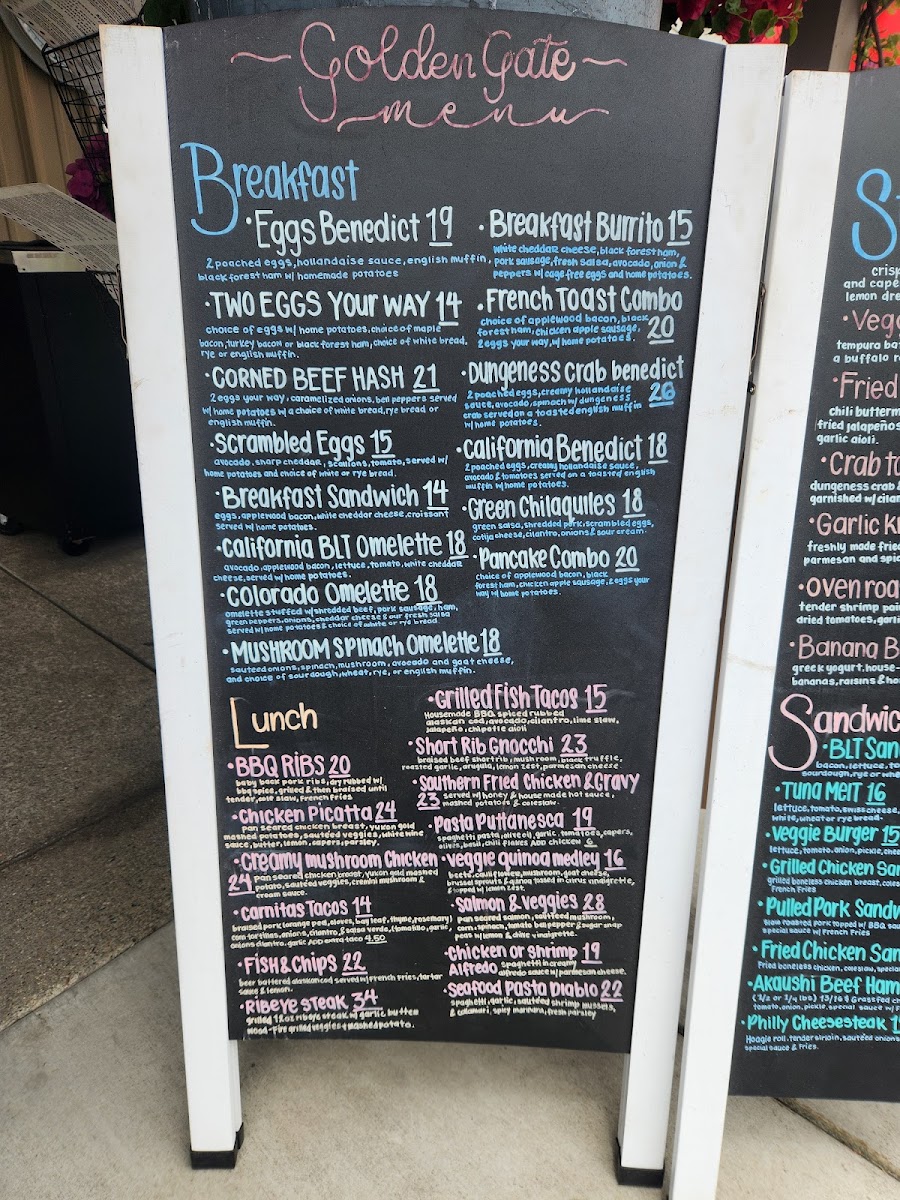 Golden Gate
menu
Breakfast
·Eggs Benedict 19
2 poached eggs, hollandaise sauce, english muffin,
black forest ham w/ homemade potatoes
·TWO EGGS YOUR WAY 14
choice of eggs w/ home potatoes, choice of maple
bacon, turkey bacon or black forest ham, choice of white bread,
rye or english muffin.
·CORNED BEEF HASH 21
2 eggs your way, caramelized onions, bell peppers served
w/ home potatoes w/ a choice of white bread, rye bread or
english muffin.
·Scrambled Eggs 15
avocado, sharp cheddar, scallions, tomato, served w/
home potatoes and choice of white or rye bread.
·Breakfast Sandwich 14
eggs, applewood bacon, white cheddar cheese, croissant
served w/ home potatoes.
·California BLT Omelette 18
avocado, applewood bacon, lettuce, tomato, white cheddar
cheese, served w/ home potatoes.
·Colorado Omelette 18
omelette stuffed w/ shredded beef, pork sausage, ham,
green peppers, onions, cheddar cheese & our fresh salsa
served w/ home potatoes & choice of white or rye bread.
·MUSHROOM SPINACH Omelette 18
sauteed onions, spinach, mushroom, avocado and goat cheese,
and choice of sourdough, wheat, rye, or english muffin.
·Breakfast Burrito 15
white cheddar cheese, black forest ham,
pork sausage, fresh salsa, avocado, onion &
peppers w/ cage free eggs and home potatoes.
·French Toast Combo
choice of applewood bacon, black
forest ham, chicken apple sausage,
2 eggs your way, w/ home potatoes.
20
·Dungeness Crab benedict
2 poached eggs, creamy hollandaise
sauce, avocado, spinach w/ dungeness
crab served on a toasted english muffin
w/ home potatoes.
26
·California Benedict 18
2 poached eggs, creamy hollandaise sauce,
avocado & tomatoes served on a toasted english
muffin w/ home potatoes.
·Green Chilaquiles 18
green salsa, shredded pork, scrambled eggs,
cotija cheese, cilantro, onions & sour cream.
·Pancake Combo 20
choice of applewood bacon, black
forest ham, chicken apple sausage, & eggs your
way w/ home potatoes.
Lunch
·BBQ RIBS 20
baby back pork ribs, dry rubbed w/
bbq spice, grilled & then braised until
tender, cole slaw, french fries
·Chicken Picatta 24
pan seared chicken breast, yukon gold
mashed potatoes, sauteed veggies, white wine
sauce, butter, lemon, capers, parsley.
·Creamy mushroom Chicken
24 Pan seared chicken breast, yukon gold mashed
potato, sauteed veggies, cremini mushroom &
cream sauce.
·Carnitas Tacos 14
braised pork (orange peel, cloves, bay leaf, thyme, rosemary)
corn tortillas, onions, cilantro, & salsa verde, (tomatillo, garlic,
onions cilantro, garlic ADD extra taco 4.50
·FISH & Chips 22
beer battered alaskan cod served w/ french fries, tartar
sauce & lemon.
·Ribeye steak 34
grilled 12oz ribeye steak w/ garlic butter
wood-fire grilled veggies & mashed potato.
·Grilled Fish Tacos 15
Housemade BBQ spiced rubbed
alaskan cod, avocado, cilantro, lime slaw,
jalapeño, chipotle aioli
·Short Rib Gnocchi 23
braised beef short rib, mushroom, black truffle,
roasted garlic, arugula, lemon zest, parmesan cheese
·Southern Fried Chicken & Gravy
23 served w/ honey & house made hot sauce,
mashed potatoes & coleslaw.
·Pasta Puttanesca 19
spaghetti pasta, olive oil, garlic, tomatoes, capers,
olives, basil, chili flakes ADD chicken 6
·veggie quinoa medley 16
beets, cauliflower, mushroom, goat cheese,
brussel sprouts & quinoa tossed in citrus vinaigrette,
& topped w/ lemon zest.
·Salmon & Veggies 28
pan seared salmon, sauteed mushroom,
corn, spinach, tomato bell pepper & sugar snap
peas w/ lemon & chive vinaigrette.
·Chicken or Shrimp 19
Alfredo spaghetti in creamy
alfredo sauce w/ parmesan cheese.
·Seafood Pasta Diablo 22
spaghetti, garlic, sauteed shrimp mussels,
& calamari, spicy marinara, fresh parsley
St
crisp
and cape
lemon dre
·Vegg
tempura bat
a buffalo r
·Fried
chili butterm
fried jalapeños
garlic aioli.
·Crab ta
dungeness crab &
garnished w/ cilan
·Garlic kn
freshly made fried
parmesan and spic
·Oven roa
tender shrimp pai
dried tomatoes, garli
·Banana B
greek yogurt, house-
bananas, raisins & ho
Sandwic
·BLT San
bacon, lettuce, to
sourdough, rye or whe
·Tuna Melt 16
lettuce, tomato, swiss cheese,
white, wheat or rye bread.
·Veggie Burger 15
lettuce, tomato, onion, pickle, chee
·Grilled Chicken San
grilled boneless chicken breast, coles
French Fries
·Pulled Pork Sandw
slow roasted pork topped w/ BBQ sau
special sauce w/ French Fries
·Fried Chicken San
Fried boneless chicken, coleslaw, special
·Akaushi Beef Ham
(1/2 or 3/4 lbs) 13/16 Grass fed ch
tomato, onion, pickle, special sauce w/ F
·Philly Cheesesteak 1
Hoagie roll, tender sirloin, sauteed onions
special sauce & Fries.